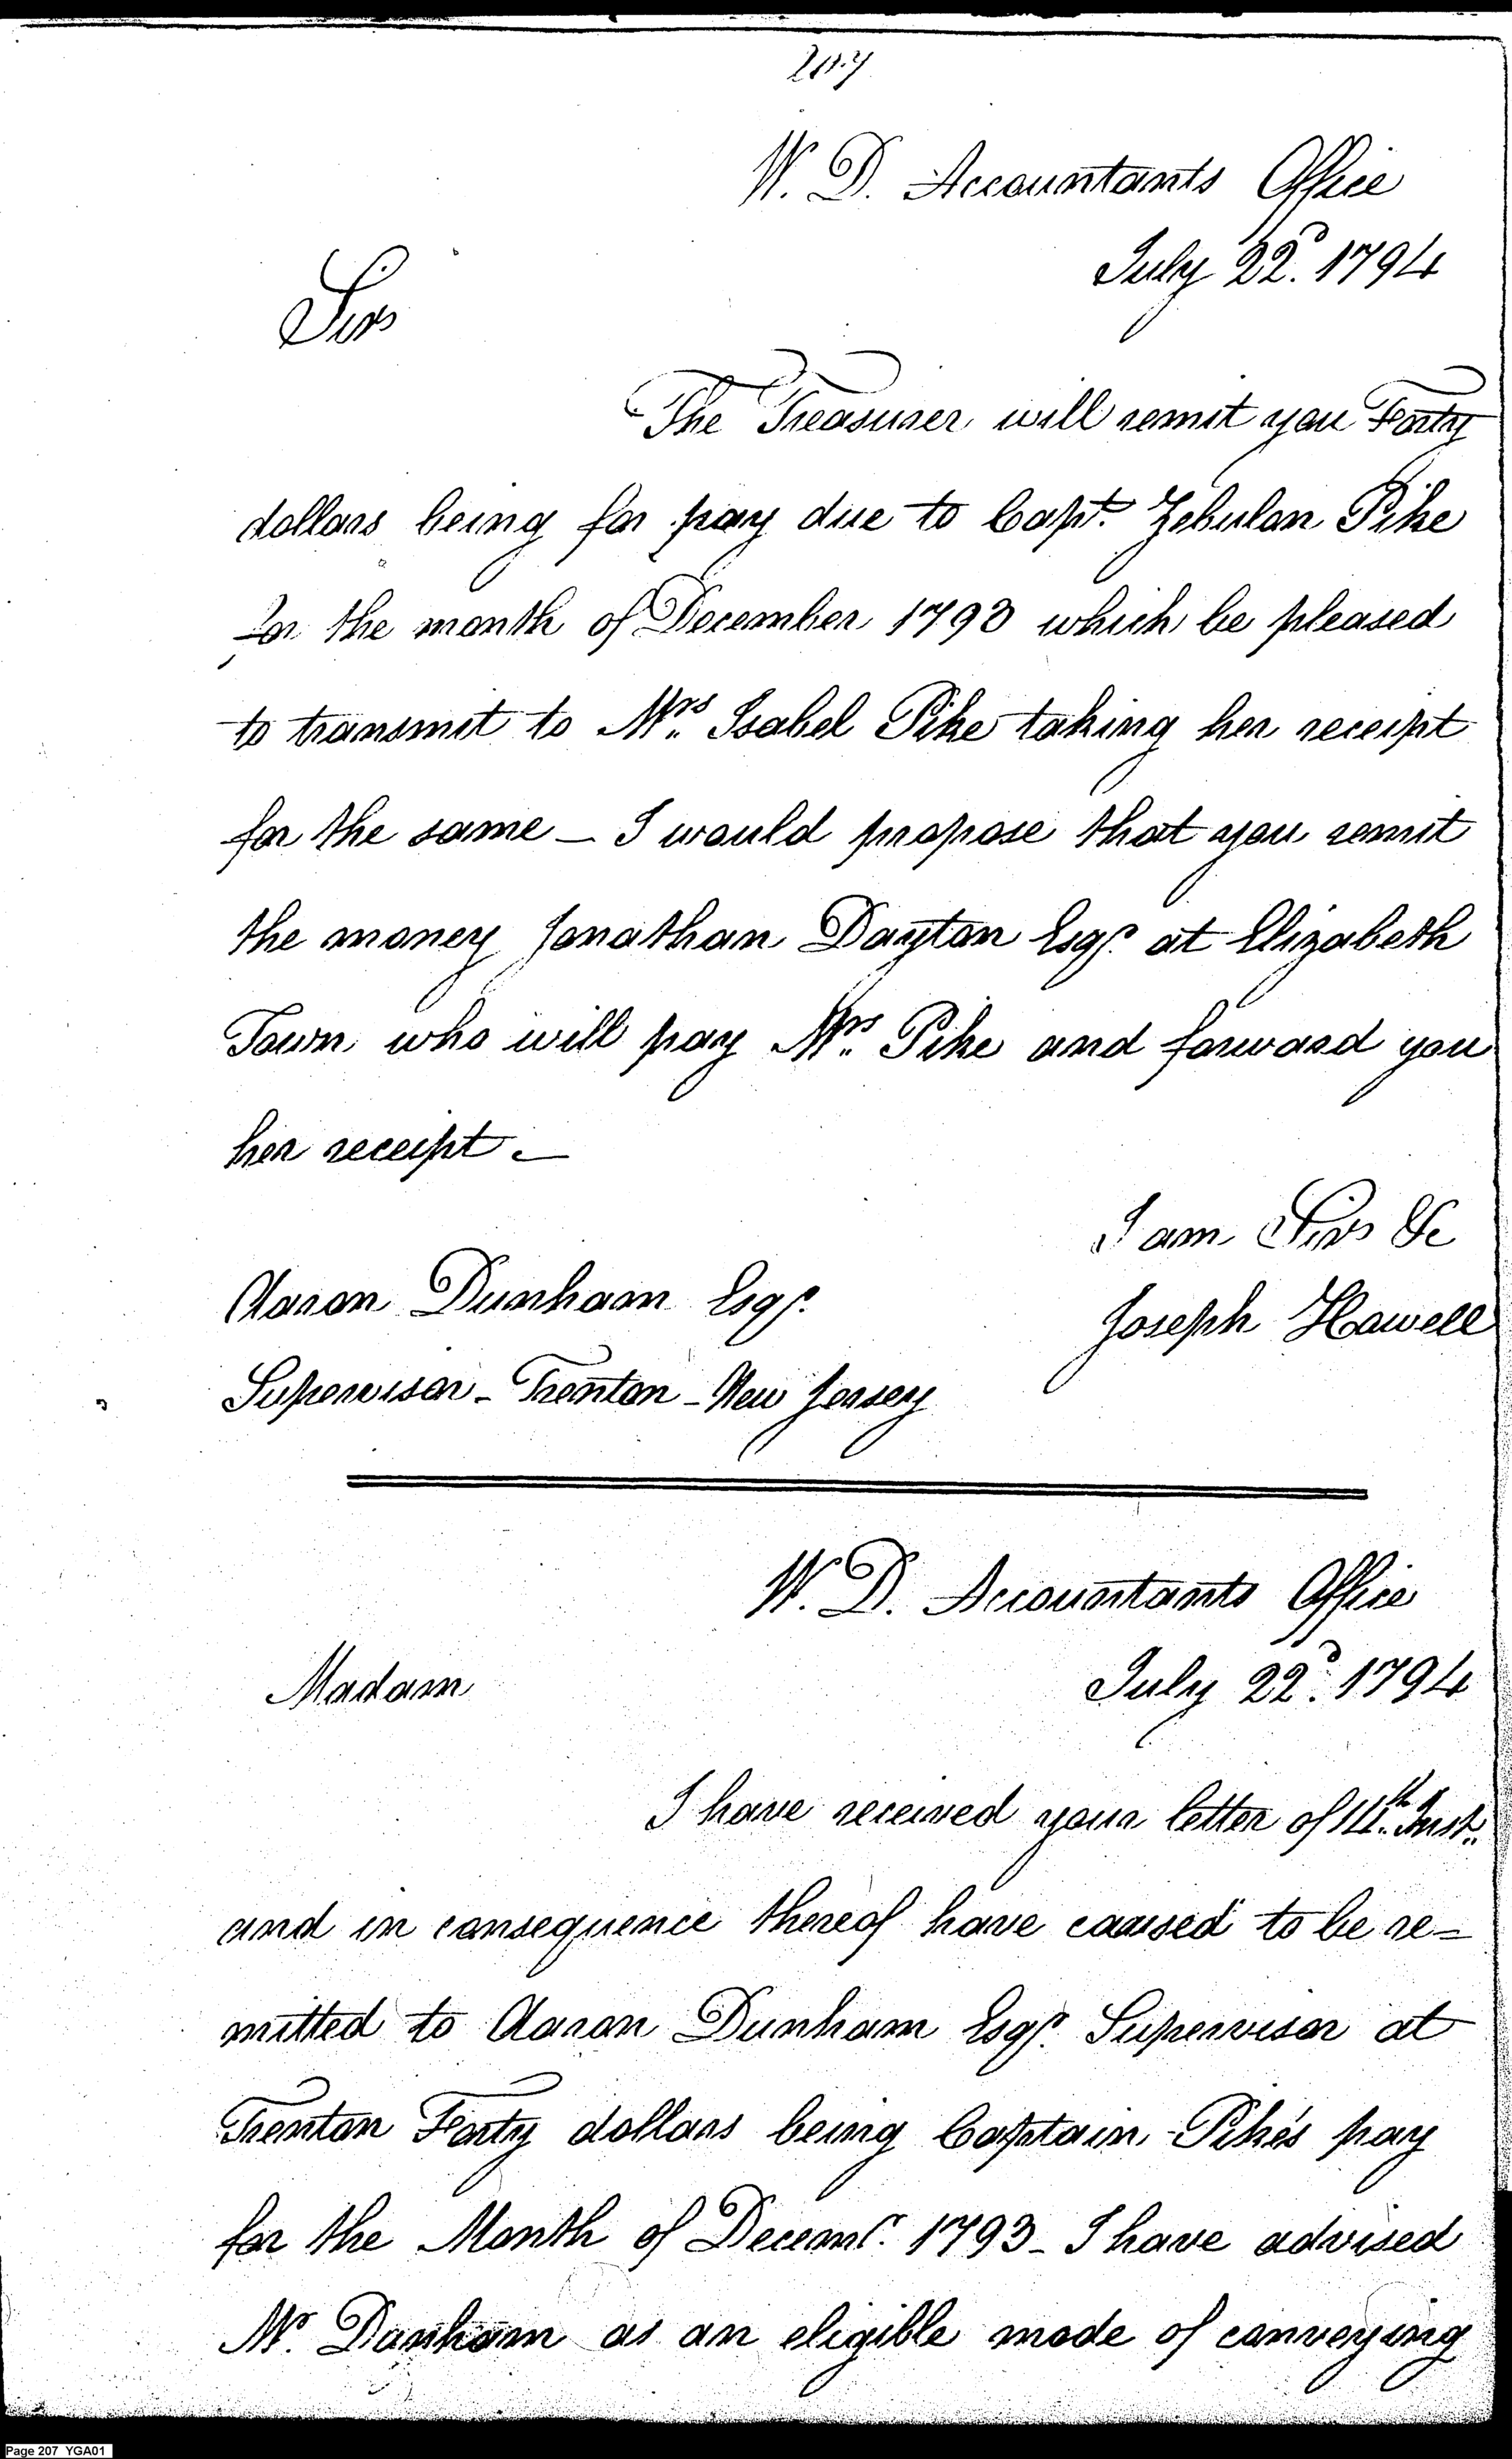 207
W. D. Accountants Office
July 22d. 1794
Sir
The Treasurer will remit you Forty
dollars being for pay due to Capt. Zebulon Pike
for the month of December 1793 which be pleased
to transmit to Mrs. Isabel Pike taking her receipt
for the same — I would propose that you remit
the money Jonathan Dayton Esqr. at Elizabeth
Town who will pay Mrs. Pike and forward you
her receipt. —
I am Sir &c
Joseph Howell
Aaron Dunham Esqr.
Supervisor - Trenton - New Jersey
W. D. Accountants Office
July 22d. 1794
Madam
I have received your letter of 14th. Inst.
and in consequence thereof have caused to be re=
mitted to Aaron Dunham Esqr. Supervisor at
Trenton Forty dollars being Captain Pike's pay
for the Month of Decemr. 1793 - I have advised
Mr. Dunham as an eligible mode of conveying
Page 207 YGA01